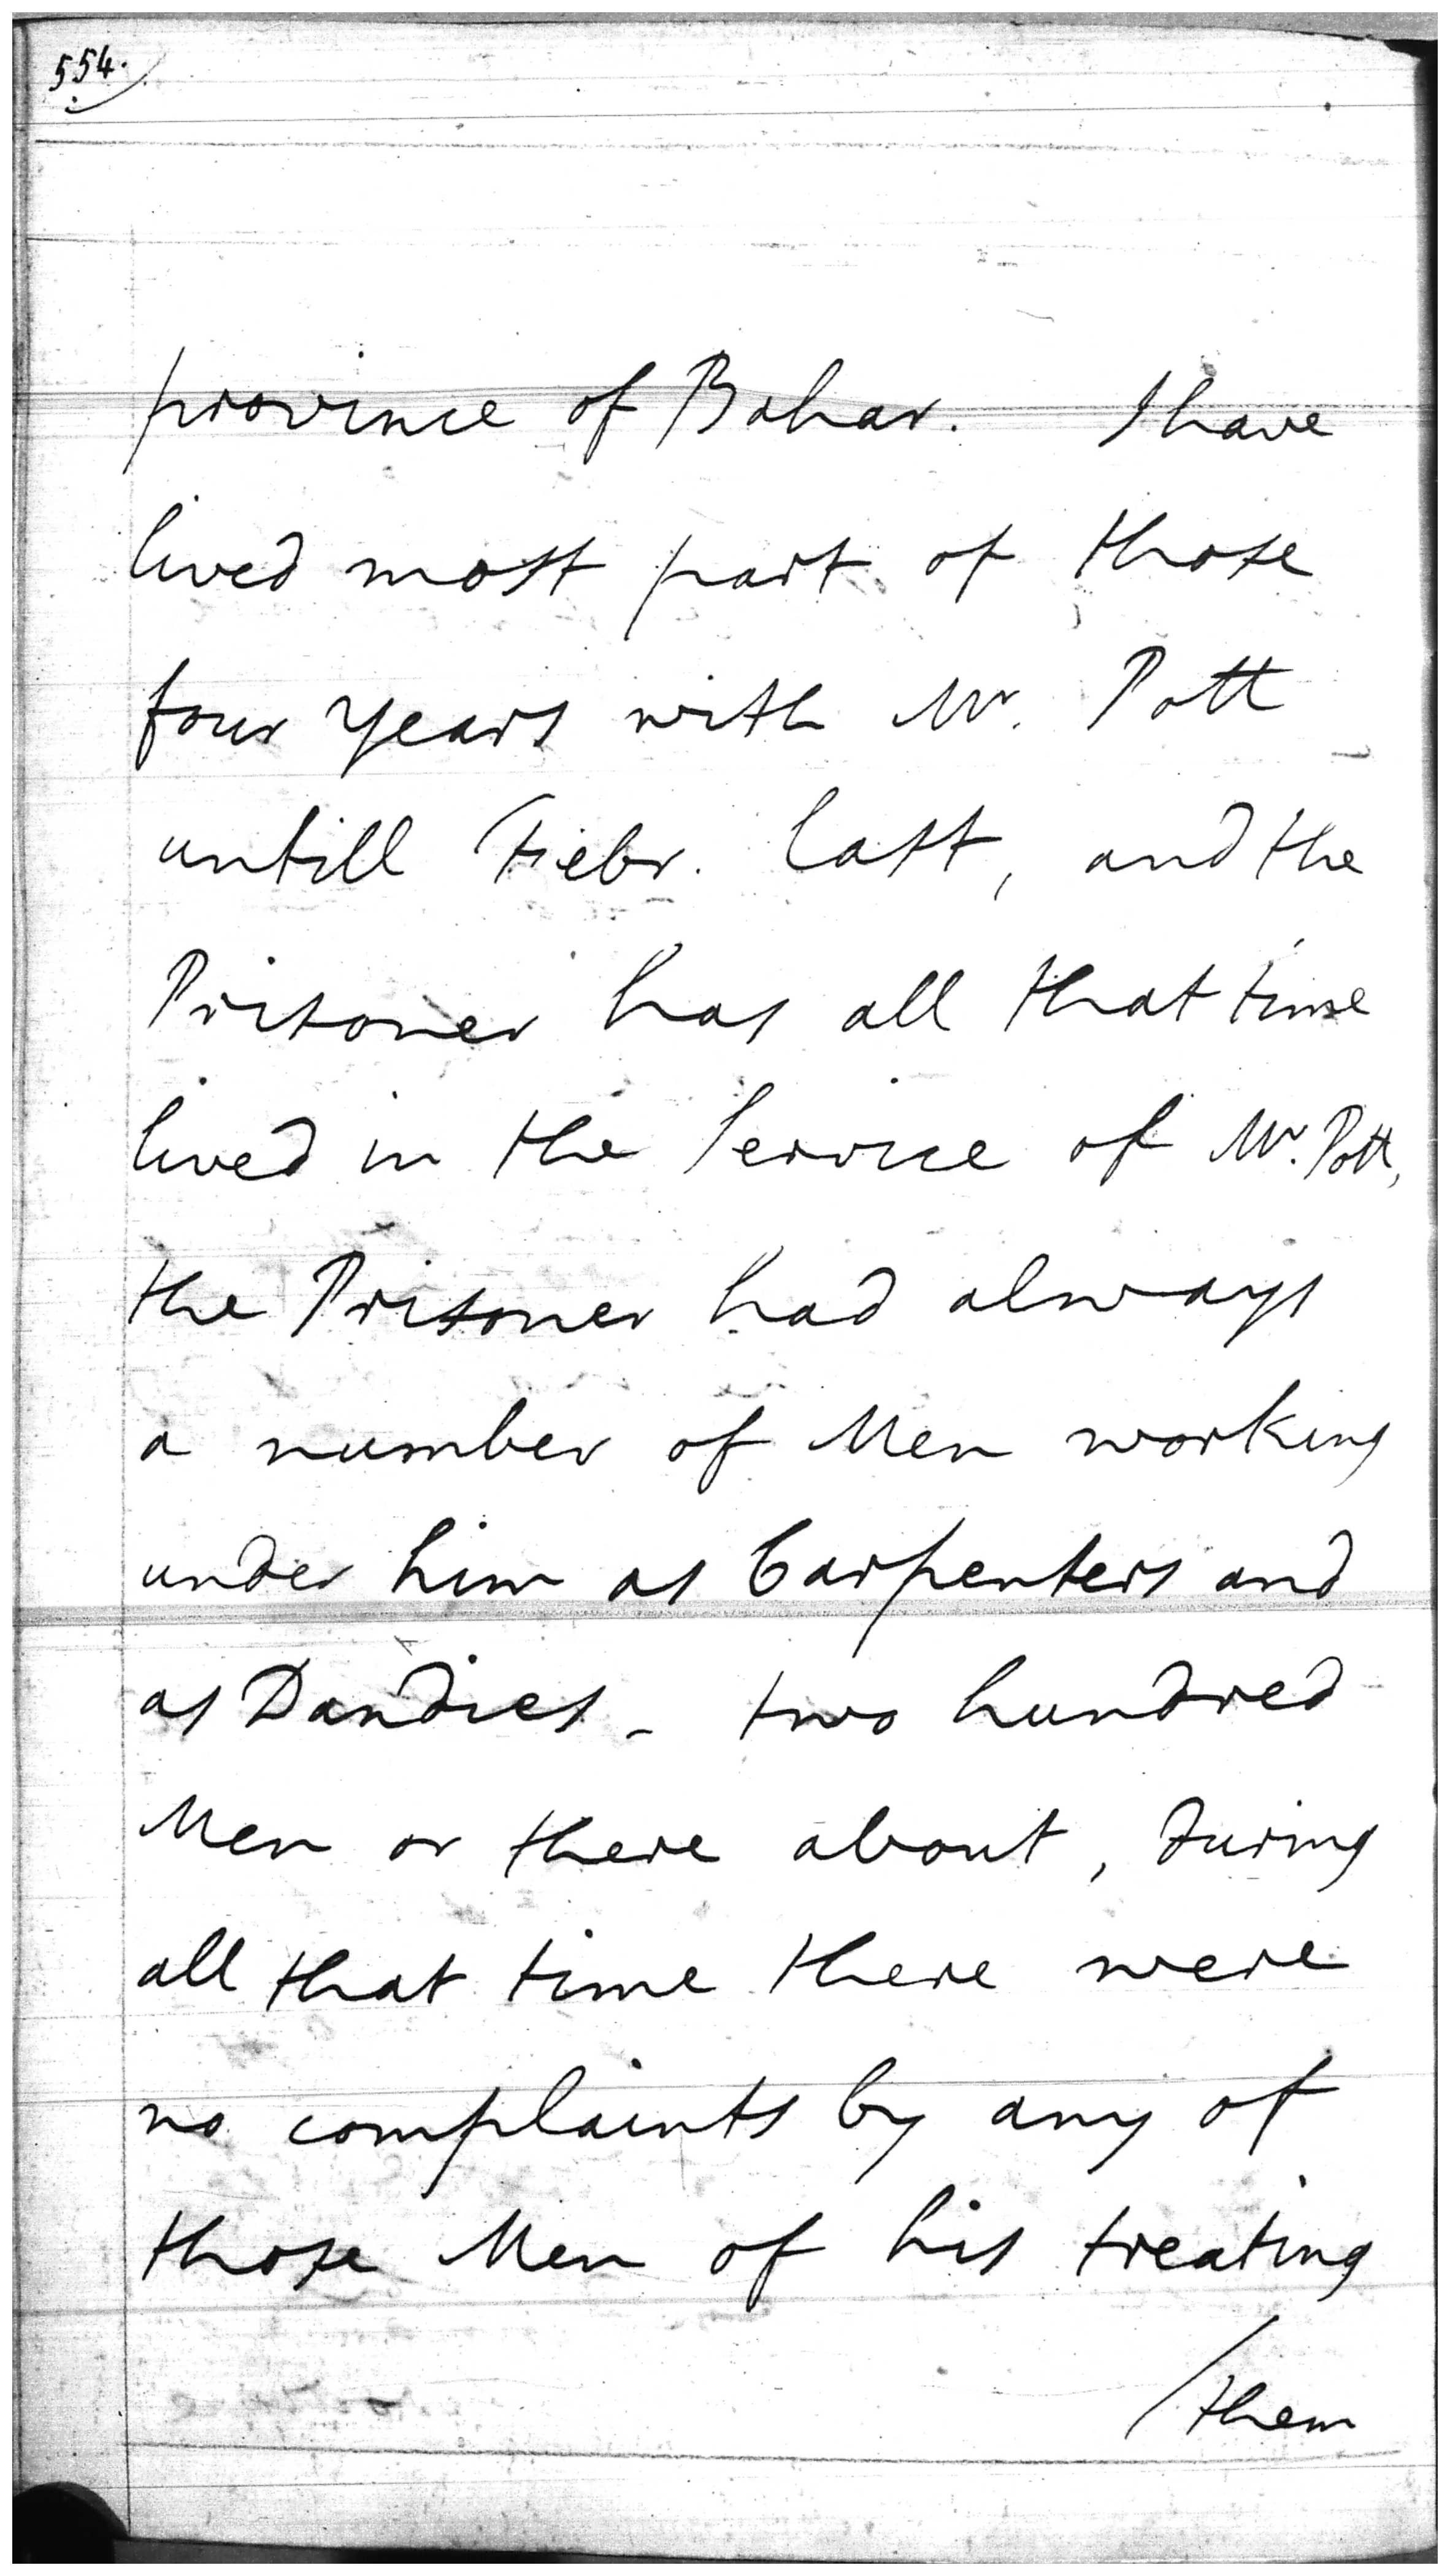 554.
province of Bahar. I have
lived most part of those
four years with Mr. Pott
untill Febr. last, and the
Prisoner has all that time
lived in the service of Mr. Pott,
the Prisoner had always
a number of Men working
under him as Carpenters and
as Dandies - two hundred
Men or there about, during
all that time there were
no complaints by any of
those Men of his treating
/them